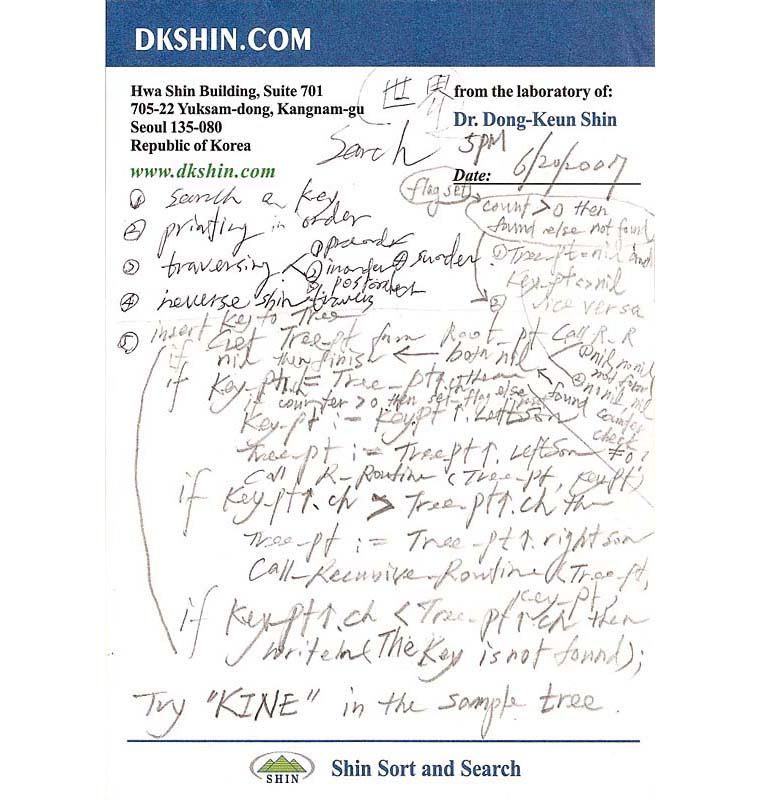 DKSHIN.COM
Hwa Shin Building, Suite 701
705-22 Yuksam-dong, Kangnam-gu
Seoul 135-080
Republic of Korea
www.dkshin.com
世界
from the laboratory of:
Dr. Dong-Keun Shin
Search
5PM
Date: 6/20/2007
flag set
count > 0 then
found else not found
① Search a key
② printing in order
③ traversing < ① preorder
② inorder ④
③ postorder
④ reverse shin
① Tree-pt = nil and
Key-pt <> nil
② vice versa
⑤ insert key to Tree
Get Tree_pt from Root_pt Call R_R
if nil then finish ← both nil
① nil no nil
not found
② nil nil
found counter
check
≠0;
if Key_pt↑.ch = Tree_pt↑.ch then
if counter > 0, then set-flag else
Key-pt := Keypt↑.LeftSon
Tree-pt := Treept↑.LeftSon
Call R-Routine (Tree-pt, Keypt)
if Key-pt↑.ch > Tree-pt↑.ch then
Tree-pt := Tree-pt↑.rightson
Call-Recursive-Routine (Tree-pt,
Key-pt);
if Key-pt↑.ch < Tree-pt↑.ch then
writeln(The Key is not found);
Try "KINE" in the sample tree.
SHIN
Shin Sort and Search